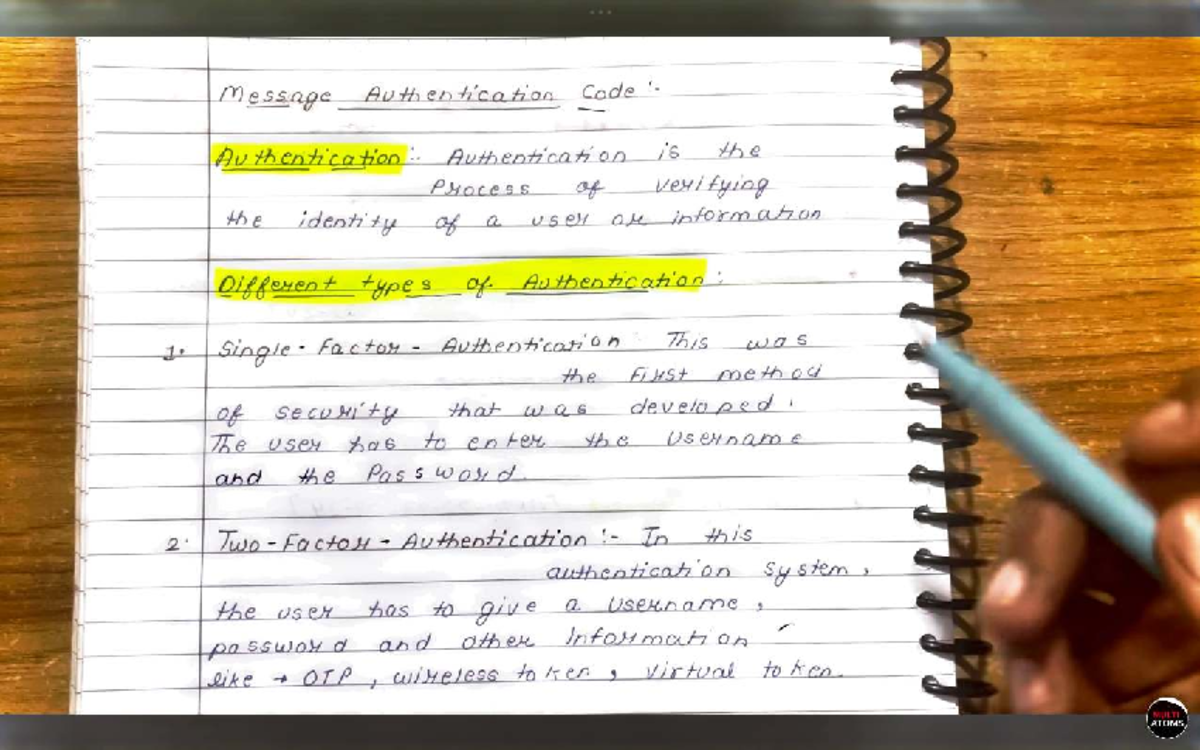 Message Authentication Code :-
Authentication :- Authentication is the
Process of verifying
the identity of a user or information
Different types of Authentication :
1. Single-Factor-Authentication : This was
the First method
of security that was developed.
The user has to enter the Username
and the Password.
2. Two-Factor-Authentication :- In this
authentication system,
the user has to give a Username,
password and other Information
like → OTP, wireless token, Virtual token.
MULTI
ATOMS